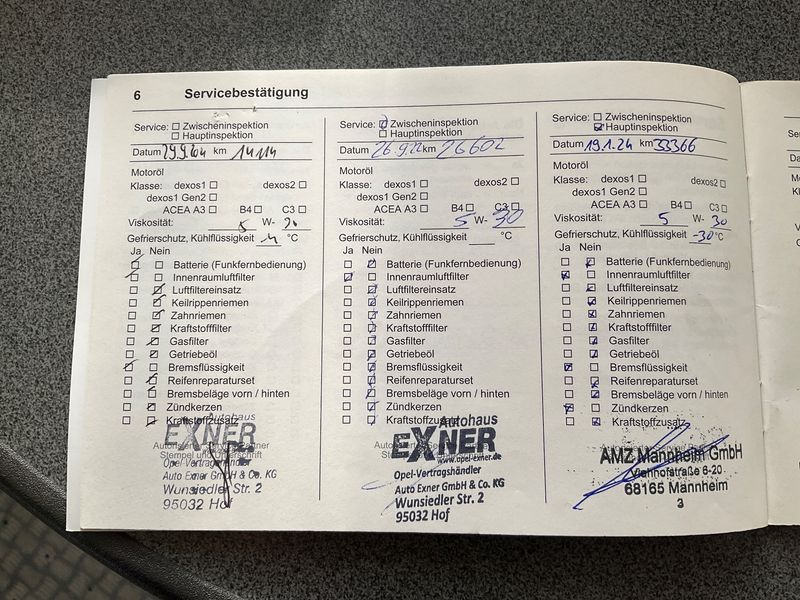 6 Servicebestätigung
Service: Zwischeninspektion
Hauptinspektion
Datum km 14114
Motoröl
Klasse: dexos1 dexos2
dexos1 Gen2
ACEA A3 B4 C3
Viskosität: 5 W- 30
Gefrierschutz, Kühlflüssigkeit °C
Ja Nein
Batterie (Funkfernbedienung)
Innenraumluftfilter
Luftfiltereinsatz
Keilrippenriemen
Zahnriemen
Kraftstofffilter
Gasfilter
Getriebeöl
Bremsflüssigkeit
Reifenreparaturset
Bremsbeläge vorn / hinten
Zündkerzen
Kraftstoffzusatz
Autohaus
EXNER
Opel-Vertragshändler
Auto Exner GmbH & Co. KG
Wunsiedler Str. 2
95032 Hof
Service: Zwischeninspektion
Hauptinspektion
Datum 26.9.22 km 26602
Motoröl
Klasse: dexos1 dexos2
dexos1 Gen2
ACEA A3 B4 C3
Viskosität: 5 W- 30
Gefrierschutz, Kühlflüssigkeit °C
Ja Nein
Batterie (Funkfernbedienung)
Innenraumluftfilter
Luftfiltereinsatz
Keilrippenriemen
Zahnriemen
Kraftstofffilter
Gasfilter
Getriebeöl
Bremsflüssigkeit
Reifenreparaturset
Bremsbeläge vorn / hinten
Zündkerzen
Kraftstoffzusatz
Autohaus
EXNER
www.opel-exner.de
Opel-Vertragshändler
Auto Exner GmbH & Co. KG
Wunsiedler Str. 2
95032 Hof
Service: Zwischeninspektion
Hauptinspektion
Datum 19.1.24 km 33366
Motoröl
Klasse: dexos1 dexos2
dexos1 Gen2
ACEA A3 B4 C3
Viskosität: 5 W- 30
Gefrierschutz, Kühlflüssigkeit -30 °C
Ja Nein
Batterie (Funkfernbedienung)
Innenraumluftfilter
Luftfiltereinsatz
Keilrippenriemen
Zahnriemen
Kraftstofffilter
Gasfilter
Getriebeöl
Bremsflüssigkeit
Reifenreparaturset
Bremsbeläge vorn / hinten
Zündkerzen
Kraftstoffzusatz
AMZ Mannheim GmbH
Viehhofstraße 6-20
68165 Mannheim
3